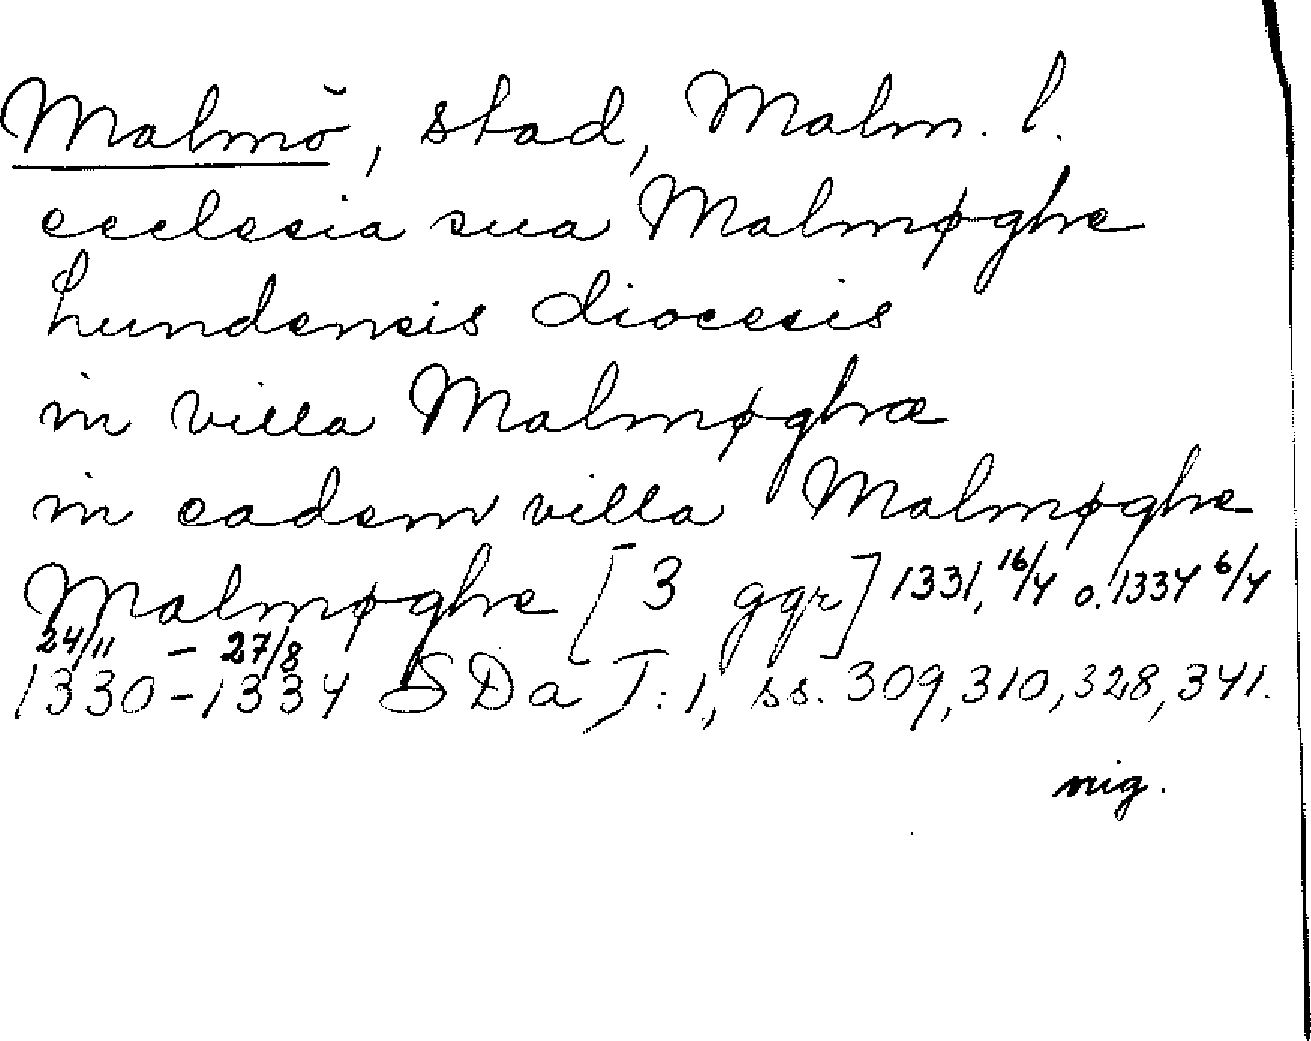 Malmö, stad, Malm. l.
ecclesia sua Malmøghe
Lundensis diocesis
in villa Malmøghæ
in eadem villa Malmøghe
Malmøghe [3 ggr] 1331, 16/4 o. 1334 6/4
24/11 – 27/8
1330-1334 SDa I:1, ss. 309, 310, 328, 341.
mig.